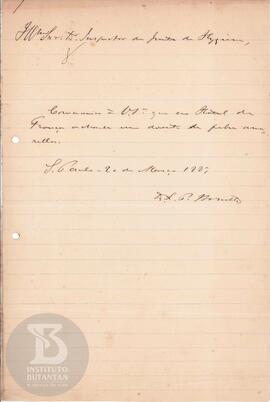 Illmo Snr. Dr. Inspector da Junta de Hygiene,
Communico a V.Sª que no Hotel de
França acha-se um doente de febre ama-
rella.
S. Paulo 20 de Março
Dr. L. P.
INSTITUTO
BUTANTAN
A serviço da vida